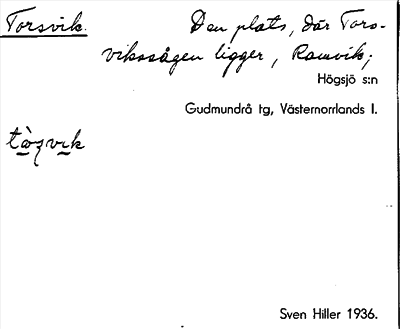 Torsvik. Den plats, där Tors-
vikssågen ligger, Ramvik;
Högsjö s:n
Gudmundrå tg, Västernorrlands l.
tòʒvik
Sven Hiller 1936.